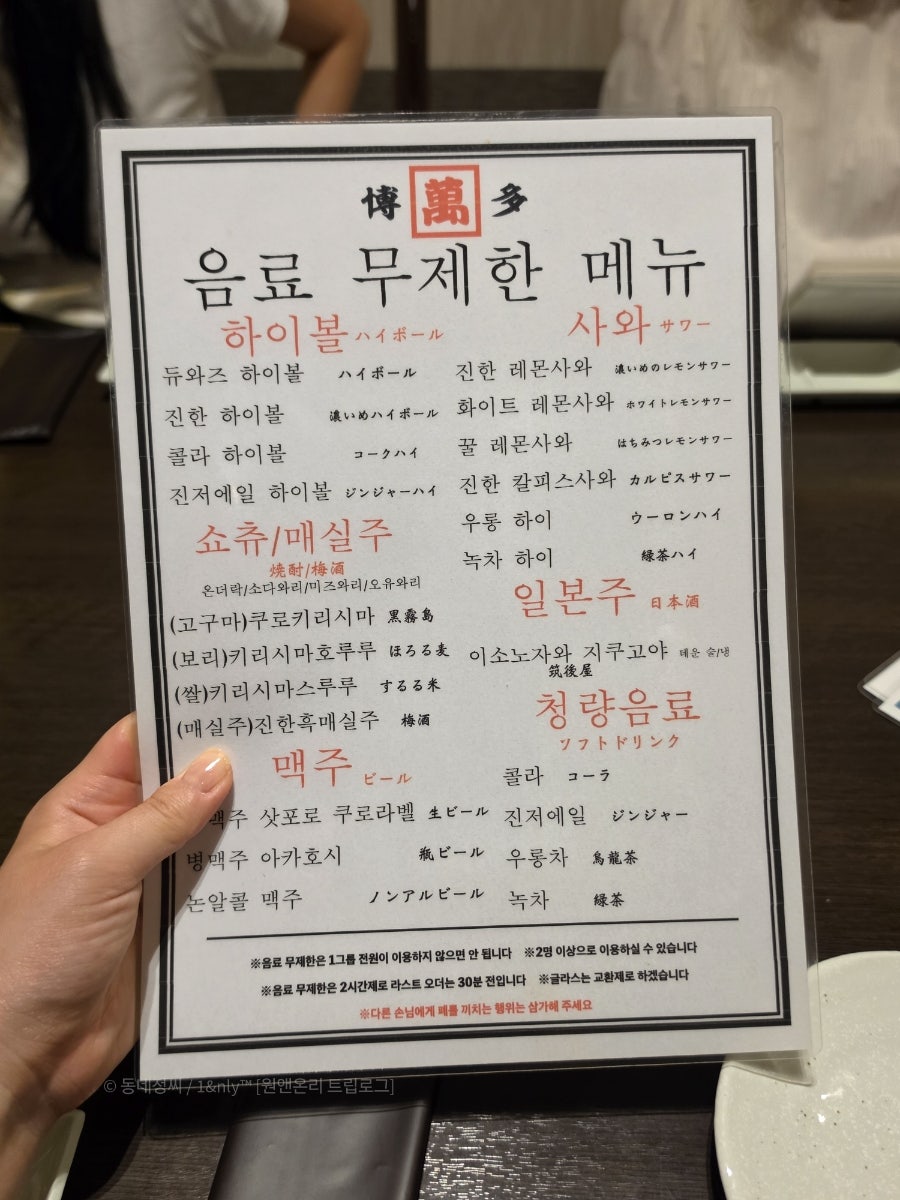 博 萬 多
음료 무제한 메뉴
하이볼 ハイボール
듀와즈 하이볼 ハイボール
진한 하이볼 濃いめハイボール
콜라 하이볼 コークハイ
진저에일 하이볼 ジンジャーハイ
쇼츄/매실주
焼酎/梅酒
온더락/소다와리/미즈와리/오유와리
(고구마)쿠로키리시마 黒霧島
(보리)키리시마호루루 ほろる麦
(쌀)키리시마스루루 するる米
(매실주)진한흑매실주 梅酒
맥주 ビール
맥주 삿포로 쿠로라벨 生ビール
병맥주 아카호시 瓶ビール
논알콜 맥주 ノンアルビール
사와 サワー
진한 레몬사와 濃いめのレモンサワー
화이트 레몬사와 ホワイトレモンサワー
꿀 레몬사와 はちみつレモンサワー
진한 칼피스사와 カルピスサワー
우롱 하이 ウーロンハイ
녹차 하이 緑茶ハイ
일본주 日本酒
이소노자와 지쿠고야 데운 술/냉
筑後屋
청량음료
ソフトドリンク
콜라 コーラ
진저에일 ジンジャー
우롱차 烏龍茶
녹차 緑茶
※음료 무제한은 1그룹 전원이 이용하지 않으면 안 됩니다 ※2명 이상으로 이용하실 수 있습니다
※음료 무제한은 2시간제로 라스트 오더는 30분 전입니다 ※글라스는 교환제로 하겠습니다
※다른 손님에게 폐를 끼치는 행위는 삼가해 주세요
© 동네정씨 / 1&nly™ [원앤온리 트립로그]